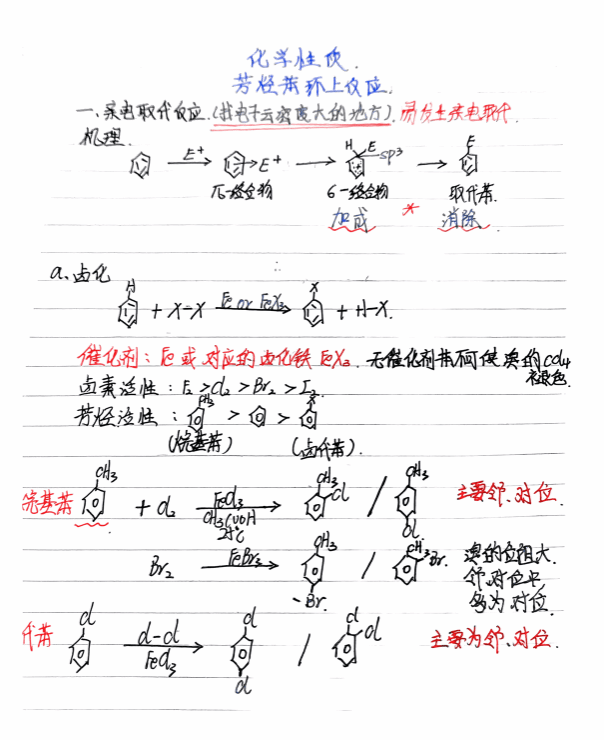 化学性质.
芳烃苯环上反应.
一、亲电取代反应.(找电子云密度大的地方).易发生亲电取代.
机理.
E+ →E+ H E sp3 E
π-络合物 σ-络合物 取代苯.
加成 * 消除.
a.卤化
H + X-X Fe or FeX3 X + H-X.
催化剂:Fe或对应的卤化铁FeX3.无催化剂苯不能使溴的CCl4
褪色.
卤素活性:F2>Cl2>Br2>I2
芳烃活性: CH3 > > X
(烷基苯) (卤代苯).
烷基苯 CH3 + Cl2 FeCl3 CH3COOH 25℃ CH3 Cl / CH3 Cl 主要邻、对位.
Br2 FeBr3 CH3 Br. / CH3 Br. 溴的位阻大.
邻、对位中,
多为对位.
代苯 Cl Cl-Cl FeCl3 Cl Cl / Cl Cl 主要为邻、对位.